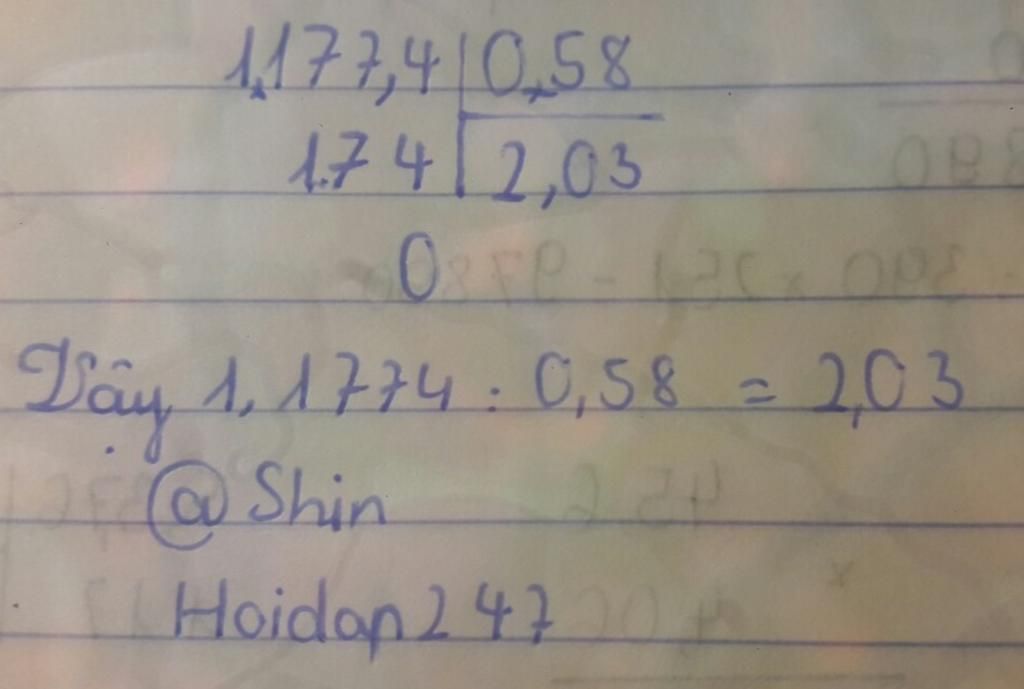 1,177,4 | 0,58
174 | 2,03
0
Vậy 1,1774 : 0,58 = 2,03
@Shin
Hoidap247